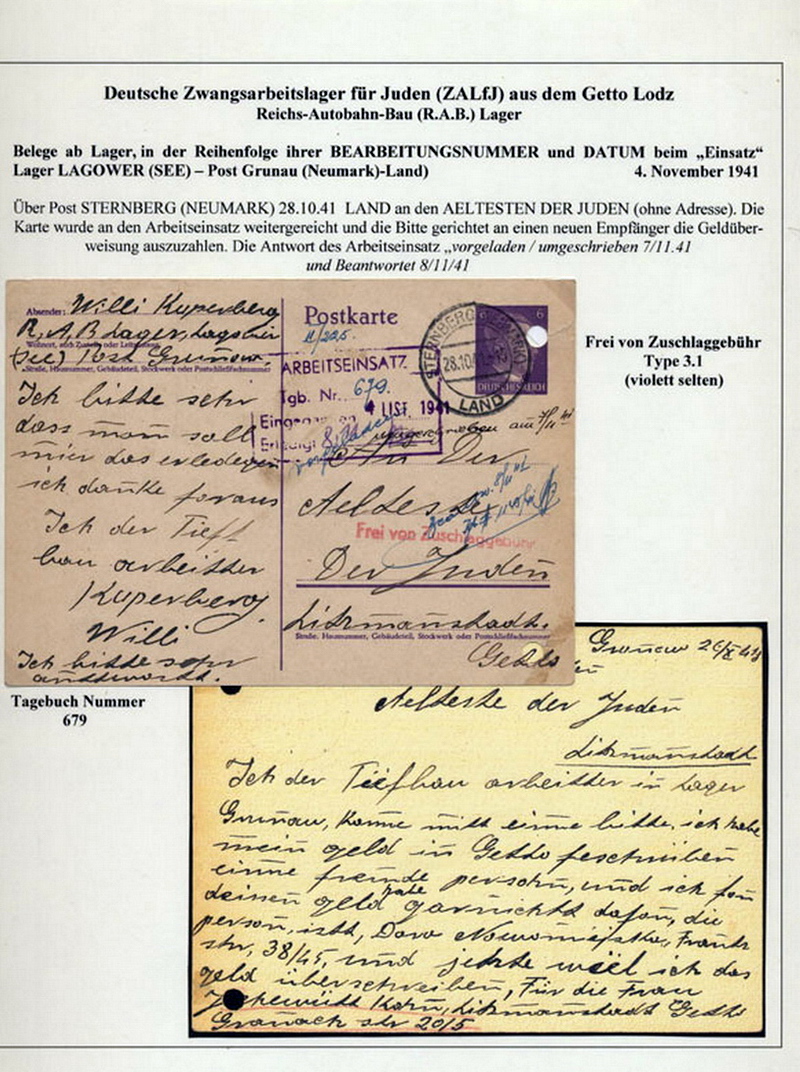 Deutsche Zwangsarbeitslager für Juden (ZALfJ) aus dem Getto Lodz
Reichs-Autobahn-Bau (R.A.B.) Lager
Belege ab Lager, in der Reihenfolge ihrer BEARBEITUNGSNUMMER und DATUM beim „Einsatz“
Lager LAGOWER (SEE) – Post Grunau (Neumark)-Land) 4. November 1941
Über Post STERNBERG (NEUMARK) 28.10.41 LAND an den AELTESTEN DER JUDEN (ohne Adresse). Die
Karte wurde an den Arbeitseinsatz weitergereicht und die Bitte gerichtet an einen neuen Empfänger die Geldüber-
weisung auszuzahlen. Die Antwort des Arbeitseinsatz „vorgeladen / umgeschrieben 7/11.41
und Beantwortet 8/11/41
Absender: Willi Kuperberg
R.A.B Lager, Lagower
Wohnort, auch Zustell- oder Leitpostamt
(See) Post Grunow.
Straße, Hausnummer, Gebäudeteil, Stockwerk oder Postschließfachnummer
Ich bitte sehr
dass man soll
mier das erledegen
ich danke foraus
Ich der Tieff
bau arbeitter
Kuperberg
Willi
Ich bitte sehr
anttwortt.
Postkarte
II/225.
6 6
DEUTSCHES REICH
STERNBERG (NEUMARK)
28.10.41
LAND
ARBEITSEINSATZ
Tgb. Nr. 679.
Eingegangen 4 LIST. 1941
Erledigt
vorgeladen
umgeschrieben am 7/11 41
An Der
Aelteste
Frei von Zuschlaggebühr
Der Juden
Litzmanstadt.
Straße, Hausnummer, Gebäudeteil, Stockwerk oder Postschließfachnummer
Getto
Frei von Zuschlaggebühr
Type 3.1
(violett selten)
Tagebuch Nummer
679
Grunow 26/X 41
Aelteste der Juden
Litzmanstadt
Ich der Tiefbau arbeitter in Lager
Grunau, Komme mitt einne bitte, ich habe
mein geld in Getto feschriben
einne fremde persohn, und ich fon
deinen geld habe garnichts dafon, die
person, istt, Dora Nowomiejska, Frantz
str, 38/45, und jetzte will ich das
geld überschreiben, Für die Frau
Kohn, Litzmanstadt Getto
str 20/5